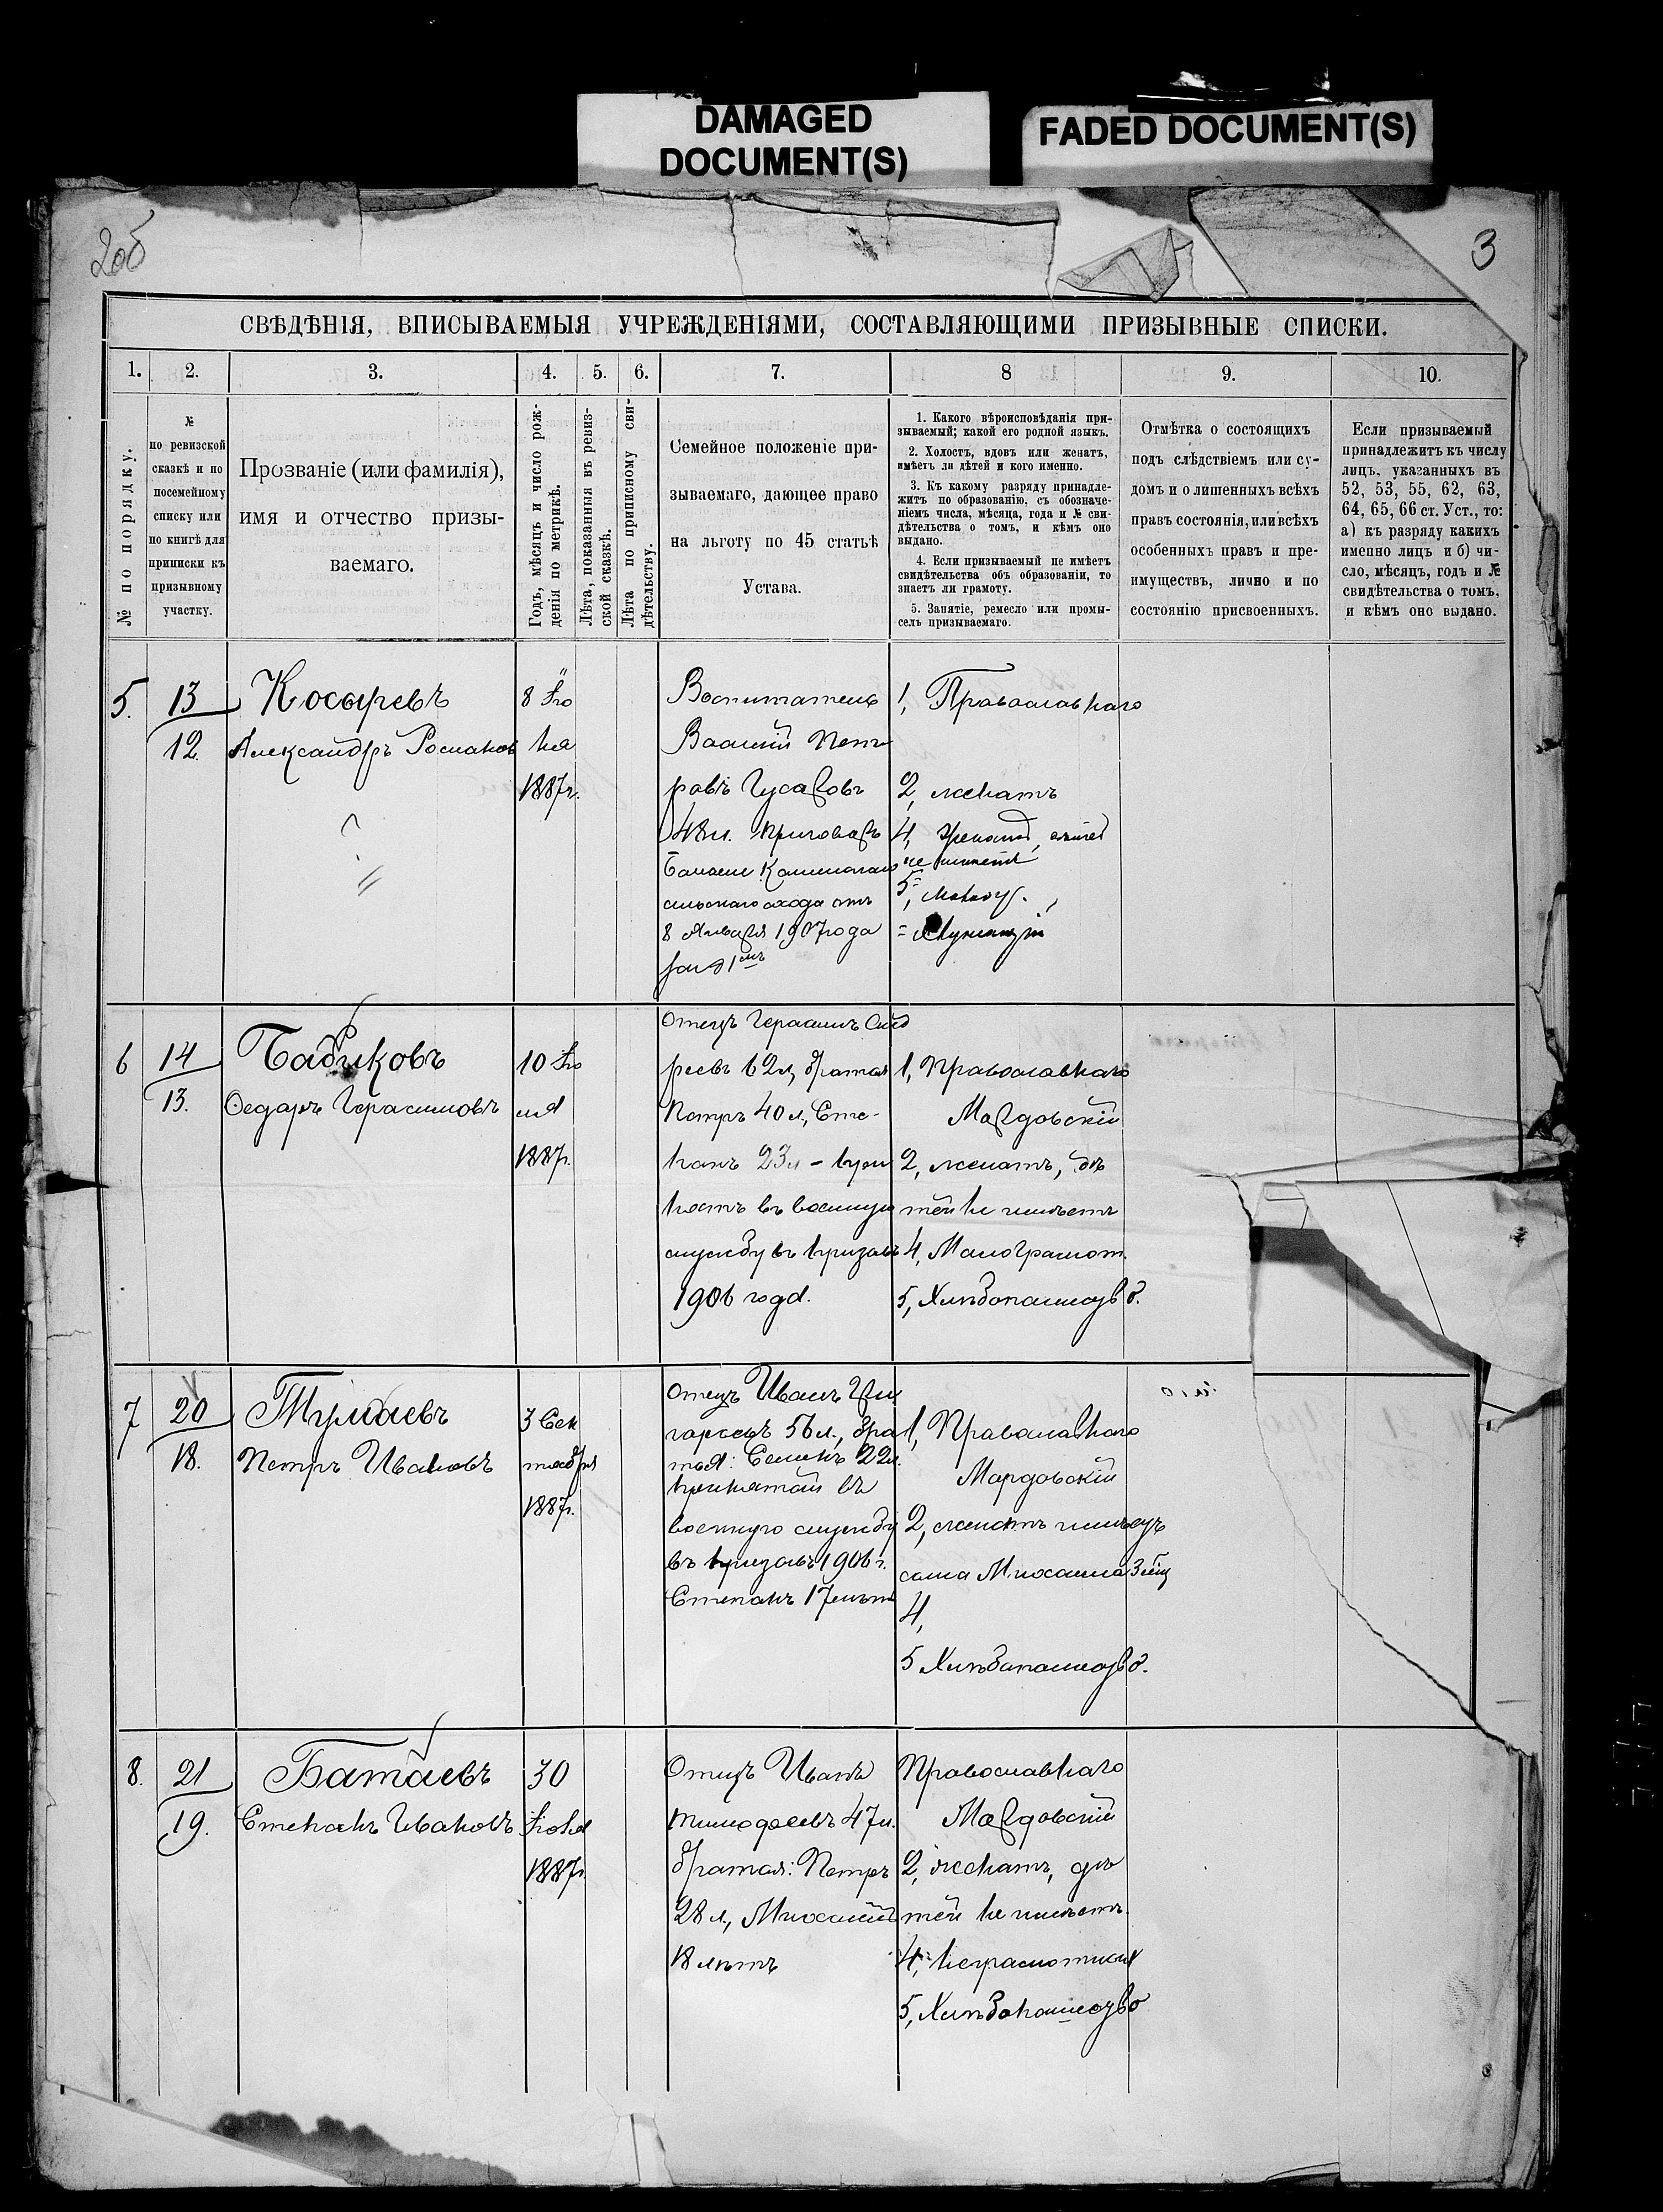 DAMAGED
DOCUMENT(S)
FADED DOCUMENT(S)
2об
3
СВѢДѢНІЯ, ВПИСЫВАЕМЫЯ УЧРЕЖДЕНІЯМИ, СОСТАВЛЯЮЩИМИ ПРИЗЫВНЫЕ СПИСКИ.
1. 2. 3. 4. 5. 6. 7. 8 9. 10.
№ по порядку.
№
по ревизской
сказкѣ и по
посемейному
списку или
по книгѣ для
приписки къ
призывному
участку.
Прозваніе (или фамилія),
имя и отчество призы-
ваемаго.
Годъ, мѣсяцъ и число рож-
денія по метрикѣ.
Лѣта, показанныя въ ревиз-
ской сказкѣ.
Лѣта по приписному сви-
дѣтельству.
Семейное положеніе при-
зываемаго, дающее право
на льготу по 45 статьѣ
Устава.
1. Какого вѣроисповѣданія при-
зываемый; какой его родной языкъ.
2. Холостъ, вдовъ или женатъ,
имѣетъ ли дѣтей и кого именно.
3. Къ какому разряду принадле-
житъ по образованію, съ обозначе-
ніемъ числа, мѣсяца, года и № сви-
дѣтельства о томъ, и кѣмъ оно
выдано.
4. Если призываемый не имѣетъ
свидѣтельства объ образованіи, то
знаетъ ли грамоту.
5. Занятіе, ремесло или промы-
селъ призываемаго.
Отмѣтка о состоящихъ
подъ слѣдствіемъ или су-
домъ и о лишенныхъ всѣхъ
правъ состоянія, или всѣхъ
особенныхъ правъ и пре-
имуществъ, лично и по
состоянію присвоенныхъ.
Если призываемый
принадлежитъ къ числу
лицъ, указанныхъ въ
52, 53, 55, 62, 63,
64, 65, 66 ст. Уст., то:
а) къ разряду какихъ
именно лицъ и б) чи-
сло, мѣсяцъ, годъ и №
свидѣтельства о томъ,
и кѣмъ оно выдано.
5.
13
12.
Косыревъ
Александръ Романов
8 Ію
ня
1887г.
Воспитатель
Василій Пет
ровъ Гусаровъ
48 л. Приговоръ
сельскаго схода отъ
8 Января 1907 года
1, Православнаго
2, женатъ
4,
5,
6
14
13.
Бабиковъ
Ѳедоръ Герасимовъ
10 Ію
ля
1887г.
Отецъ Герасимъ
62 л, братья
Петръ 40 л, Сте-
панъ 23 л - при
нятъ въ военную
службу въ призывъ
1906 года.
1, Православнаго
Мордовскій
2, женатъ, дѣ
тей не имѣетъ
4, Малограмот.
5, Хлѣбопашество.
7
20
18.
Тумаевъ
Петръ Ивановъ
3 Сен
тября
1887г.
Отецъ Иванъ Гри
горьевъ 56 л., бра
тья: Семенъ 22 л.
принятый въ
военную службу
въ призывъ 1906 г.
Степанъ 17 лѣтъ
1, Православнаго
Мордовскій
2, женатъ имѣетъ
сына Михаила
4,
5 Хлѣбопашество.
8.
21
19.
Батаевъ
Степанъ Ивановъ
30
Іюня
1887г.
Отецъ Иванъ
Тимофеевъ 47 л.
братья: Петръ
28 л., Михаилъ
18 лѣтъ
Православнаго
Мордовскій
2, женатъ, дѣ
тей не имѣетъ.
4, неграмотный
5, Хлѣбопашество